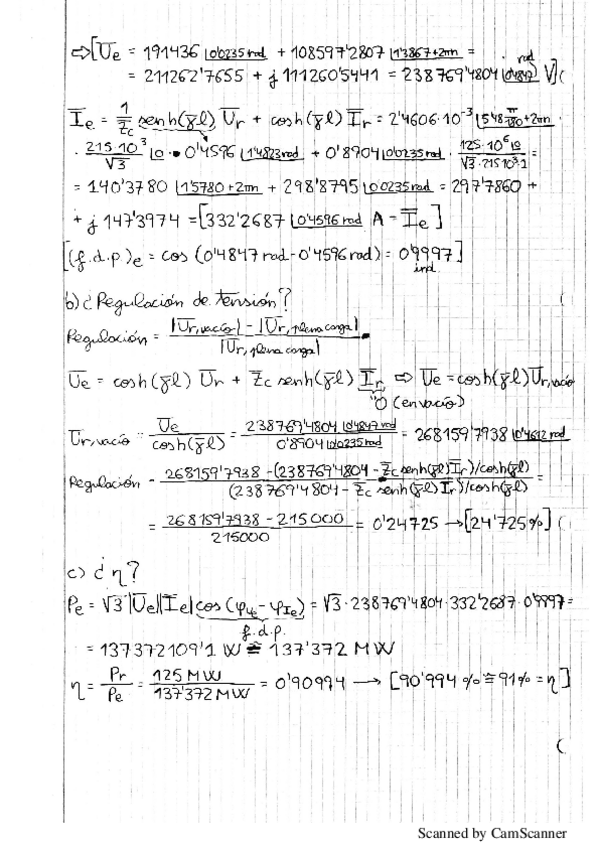 ⇒ [U̅e = 191436 |0'0235 rad + 108597'2807 |1'3867+2πn =
= 211262'7655 + j 111260'5441 = 238769'4804 |0'4847 rad V]
I̅e = 1/Z̅c senh(γ̅l) U̅r + cosh(γ̅l) I̅r = 2'4606·10⁻³ |5'48 π/180+2πn ·
· 215·10³/√3 |0 · 0'4596 |1'4823 rad + 0'8904 |0'0235 rad · 125·10⁶ |0/√3·215·10³·1 =
= 140'3780 |1'5780+2πn + 298'8795 |0'0235 rad = 297'7860 +
+ j 147'3974 = [332'2687 |0'4596 rad A = I̅e]
[(f.d.p.)e = cos (0'4847 rad - 0'4596 rad) = 0'9997]
ind.
b) ¿Regulación de tensión?
Regulación = |U̅r,vacío| - |U̅r,plena carga| / |U̅r,plena carga|
U̅e = cosh(γ̅l) U̅r + Z̅c senh(γ̅l) I̅r ⇒ U̅e = cosh(γ̅l) U̅r,vacío
"0 (en vacío)
U̅r,vacío = U̅e/cosh(γ̅l) = 238769'4804 |0'4847 rad / 0'8904 |0'0235 rad = 268159'7938 |0'4612 rad
Regulación = 268159'7938 - (238769'4804 - Z̅c senh(γ̅l) I̅r)/cosh(γ̅l) / (238769'4804 - Z̅c senh(γ̅l) I̅r)/cosh(γ̅l) =
= 268159'7938 - 215000 / 215000 = 0'24725 → [24'725%]
c) ¿η?
Pe = √3 |U̅e| |I̅e| cos (φUe - φIe) = √3·238769'4804·332'2687·0'9997 =
f.d.p.
= 137372109'1 W ≅ 137'372 MW
η = Pr/Pe = 125 MW / 137'372 MW = 0'90994 → [90'994 % ≅ 91% = η]
Scanned by CamScanner